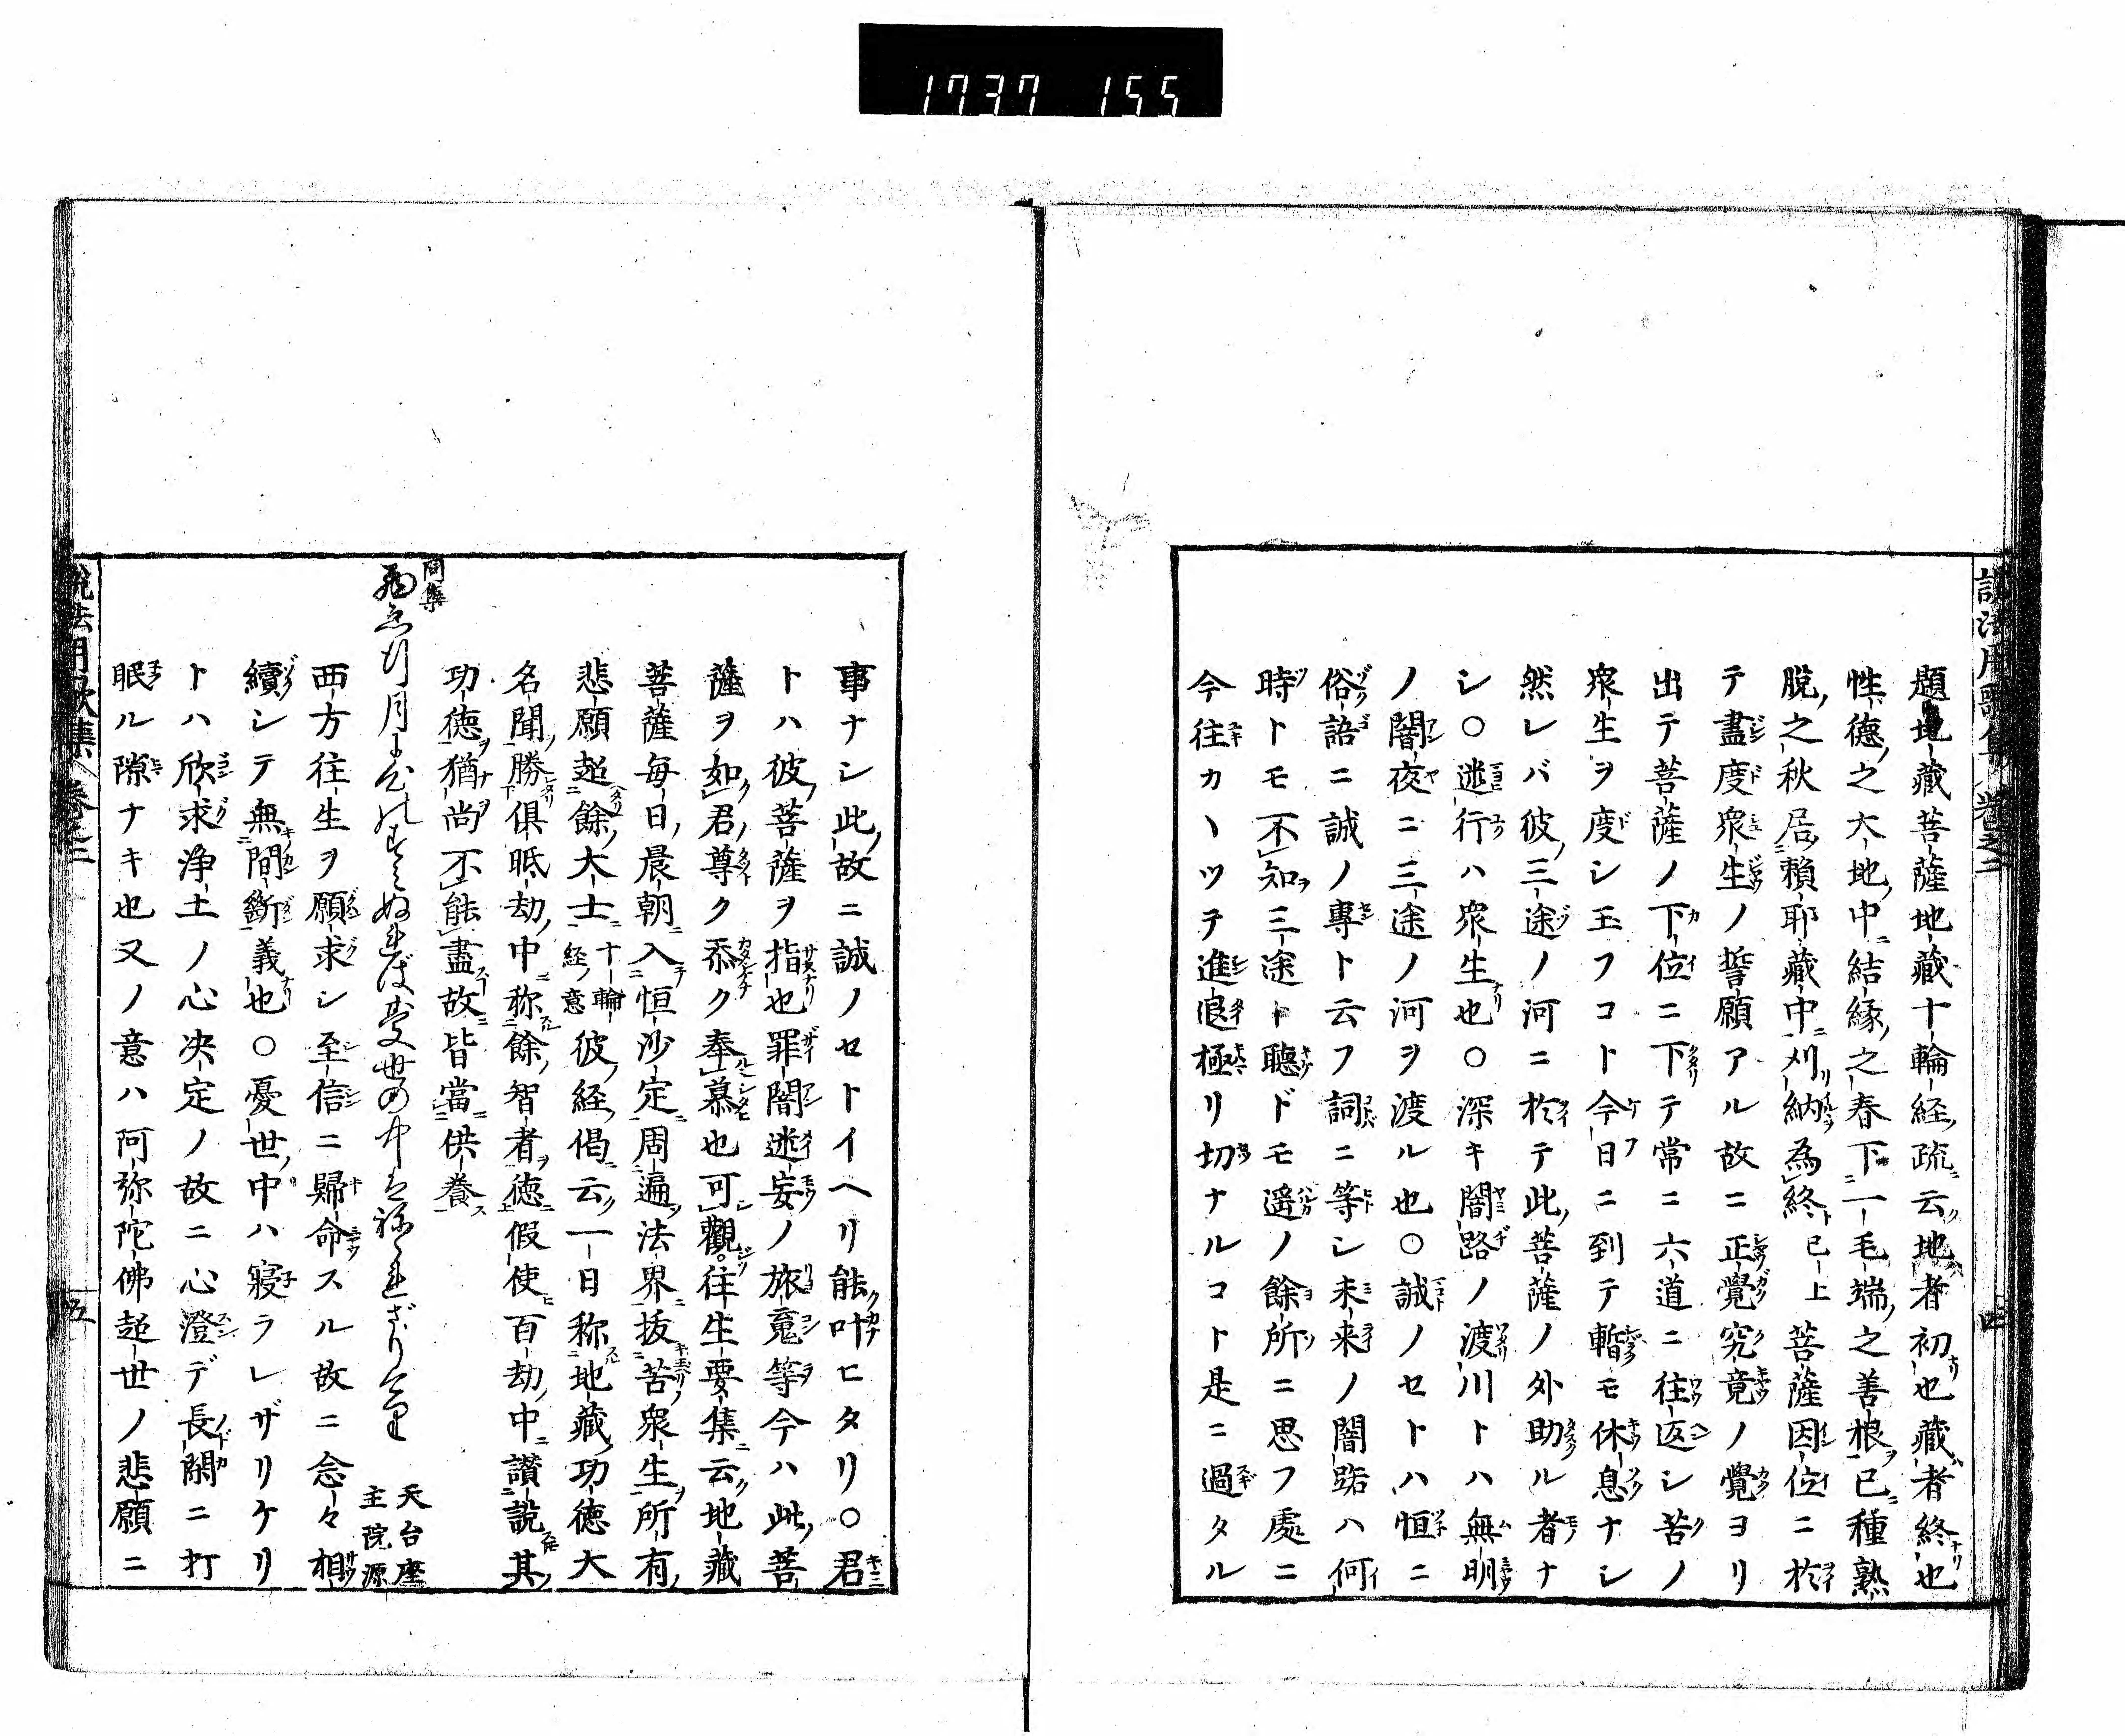 1737 155
説法用歌集 巻之二 四
題地藏菩薩地藏十輪経疏云地者初也藏者終也
性德之大地中結縁之春下一毛端之善根已種熟
脱之秋居頼耶藏中刈納為終已上菩薩因位ニ於
テ盡度衆生ノ誓願アル故ニ正覺究竟ノ覺ヨリ
出テ菩薩ノ下位ニ下テ常ニ六道ニ往返シ苦ノ
衆生ヲ度シ玉フコト今日ニ到テ暫モ休息ナシ
然レバ彼三途ノ河ニ於テ此菩薩ノ外助ル者ナ
シ○迷行ハ衆生也○深キ闇路ノ渡川トハ無明
ノ闇夜ニ三途ノ河ヲ渡ル也○誠ノセトハ恒ニ
俗語ニ誠ノ專ト云フ詞ニ等シ未来ノ闇路ハ何
時トモ不知三途ト聴ドモ遥ノ餘所ニ思フ處ニ
今往カヽツテ進退極リ切ナルコト是ニ過タル
事ナシ此故ニ誠ノセトイヘリ能叶ヒタリ○君
トハ彼菩薩ヲ指也罪闇迷妄ノ旅寬等今ハ此菩
薩ヲ如君尊ク忝ク奉慕也可觀。往生要集云地藏
菩薩每日晨朝入恒沙定周遍法界拔苦衆生所有
悲願超餘大士十輪経意彼経偈云一日称地藏功徳大
名聞勝倶胝劫中称餘智者徳假使百劫中讃説其
功徳猶尚不能盡故皆當供養
同集
天台座主院源
西方往生ヲ願求シ至信ニ歸命スル故ニ念々相
續シテ無間斷義也○憂世中ハ寢ラレザリケリ
トハ欣求浄土ノ心决定ノ故ニ心澄デ長閑ニ打
眠ル隙ナキ也又ノ意ハ阿弥陀佛超世ノ悲願ニ
説法用歌集 巻之二 五